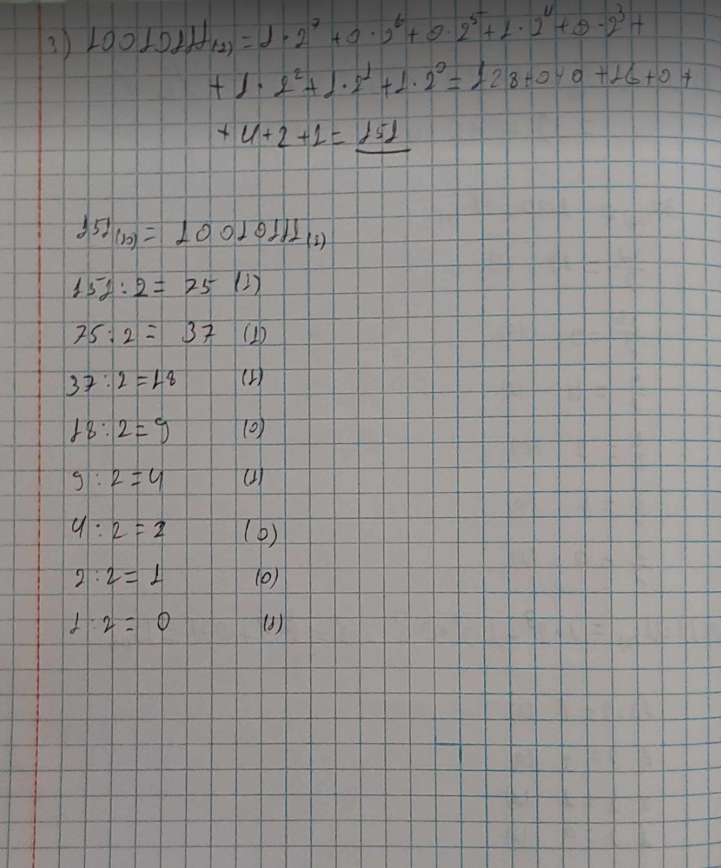 3) 10010111(2) = 1·2⁷ + 0·2⁶ + 0·2⁵ + 1·2⁴ + 0·2³ +
+ 1·2² + 1·2¹ + 1·2⁰ = 128 + 0 + 0 + 16 + 0 +
+ 4 + 2 + 1 = 151
151(10) = 10010111(2)
151 : 2 = 75 (1)
75 : 2 = 37 (1)
37 : 2 = 18 (1)
18 : 2 = 9 (0)
9 : 2 = 4 (1)
4 : 2 = 2 (0)
2 : 2 = 1 (0)
1 : 2 = 0 (1)